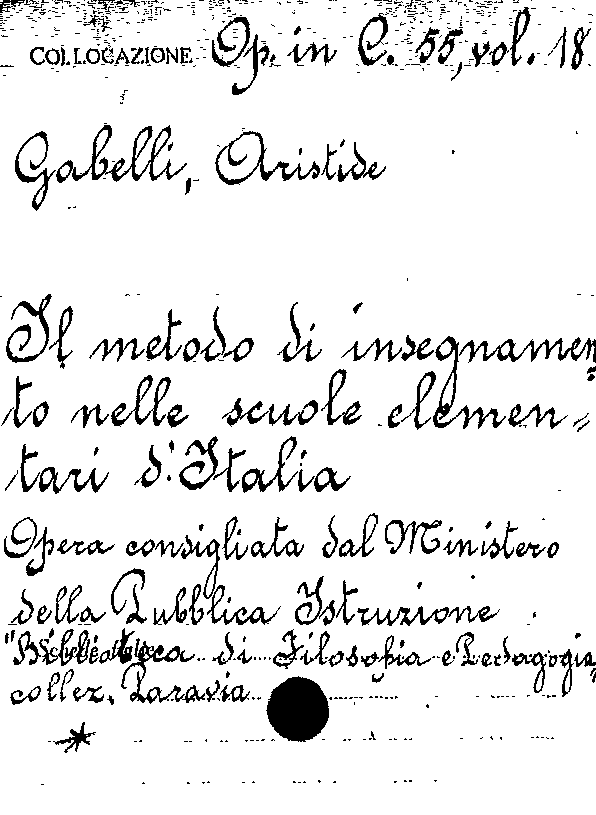 COLLOCAZIONE Op. in C. 55, vol. 18
Gabelli, Aristide
Il metodo di insegnamen=
to nelle scuole elemen=
tari d'Italia
Opera consigliata dal Ministero
della Pubblica Istruzione
"Biblioteca di Filosofia e Pedagogia,
collez. Paravia
*